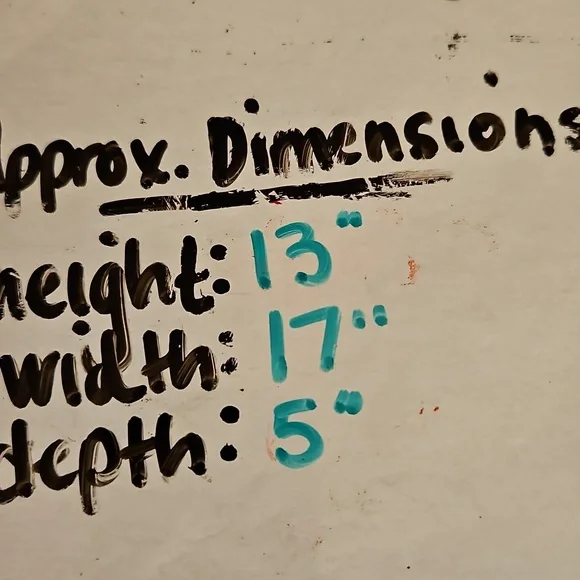 Approx. Dimensions
height: 13"
width: 17"
depth: 5"